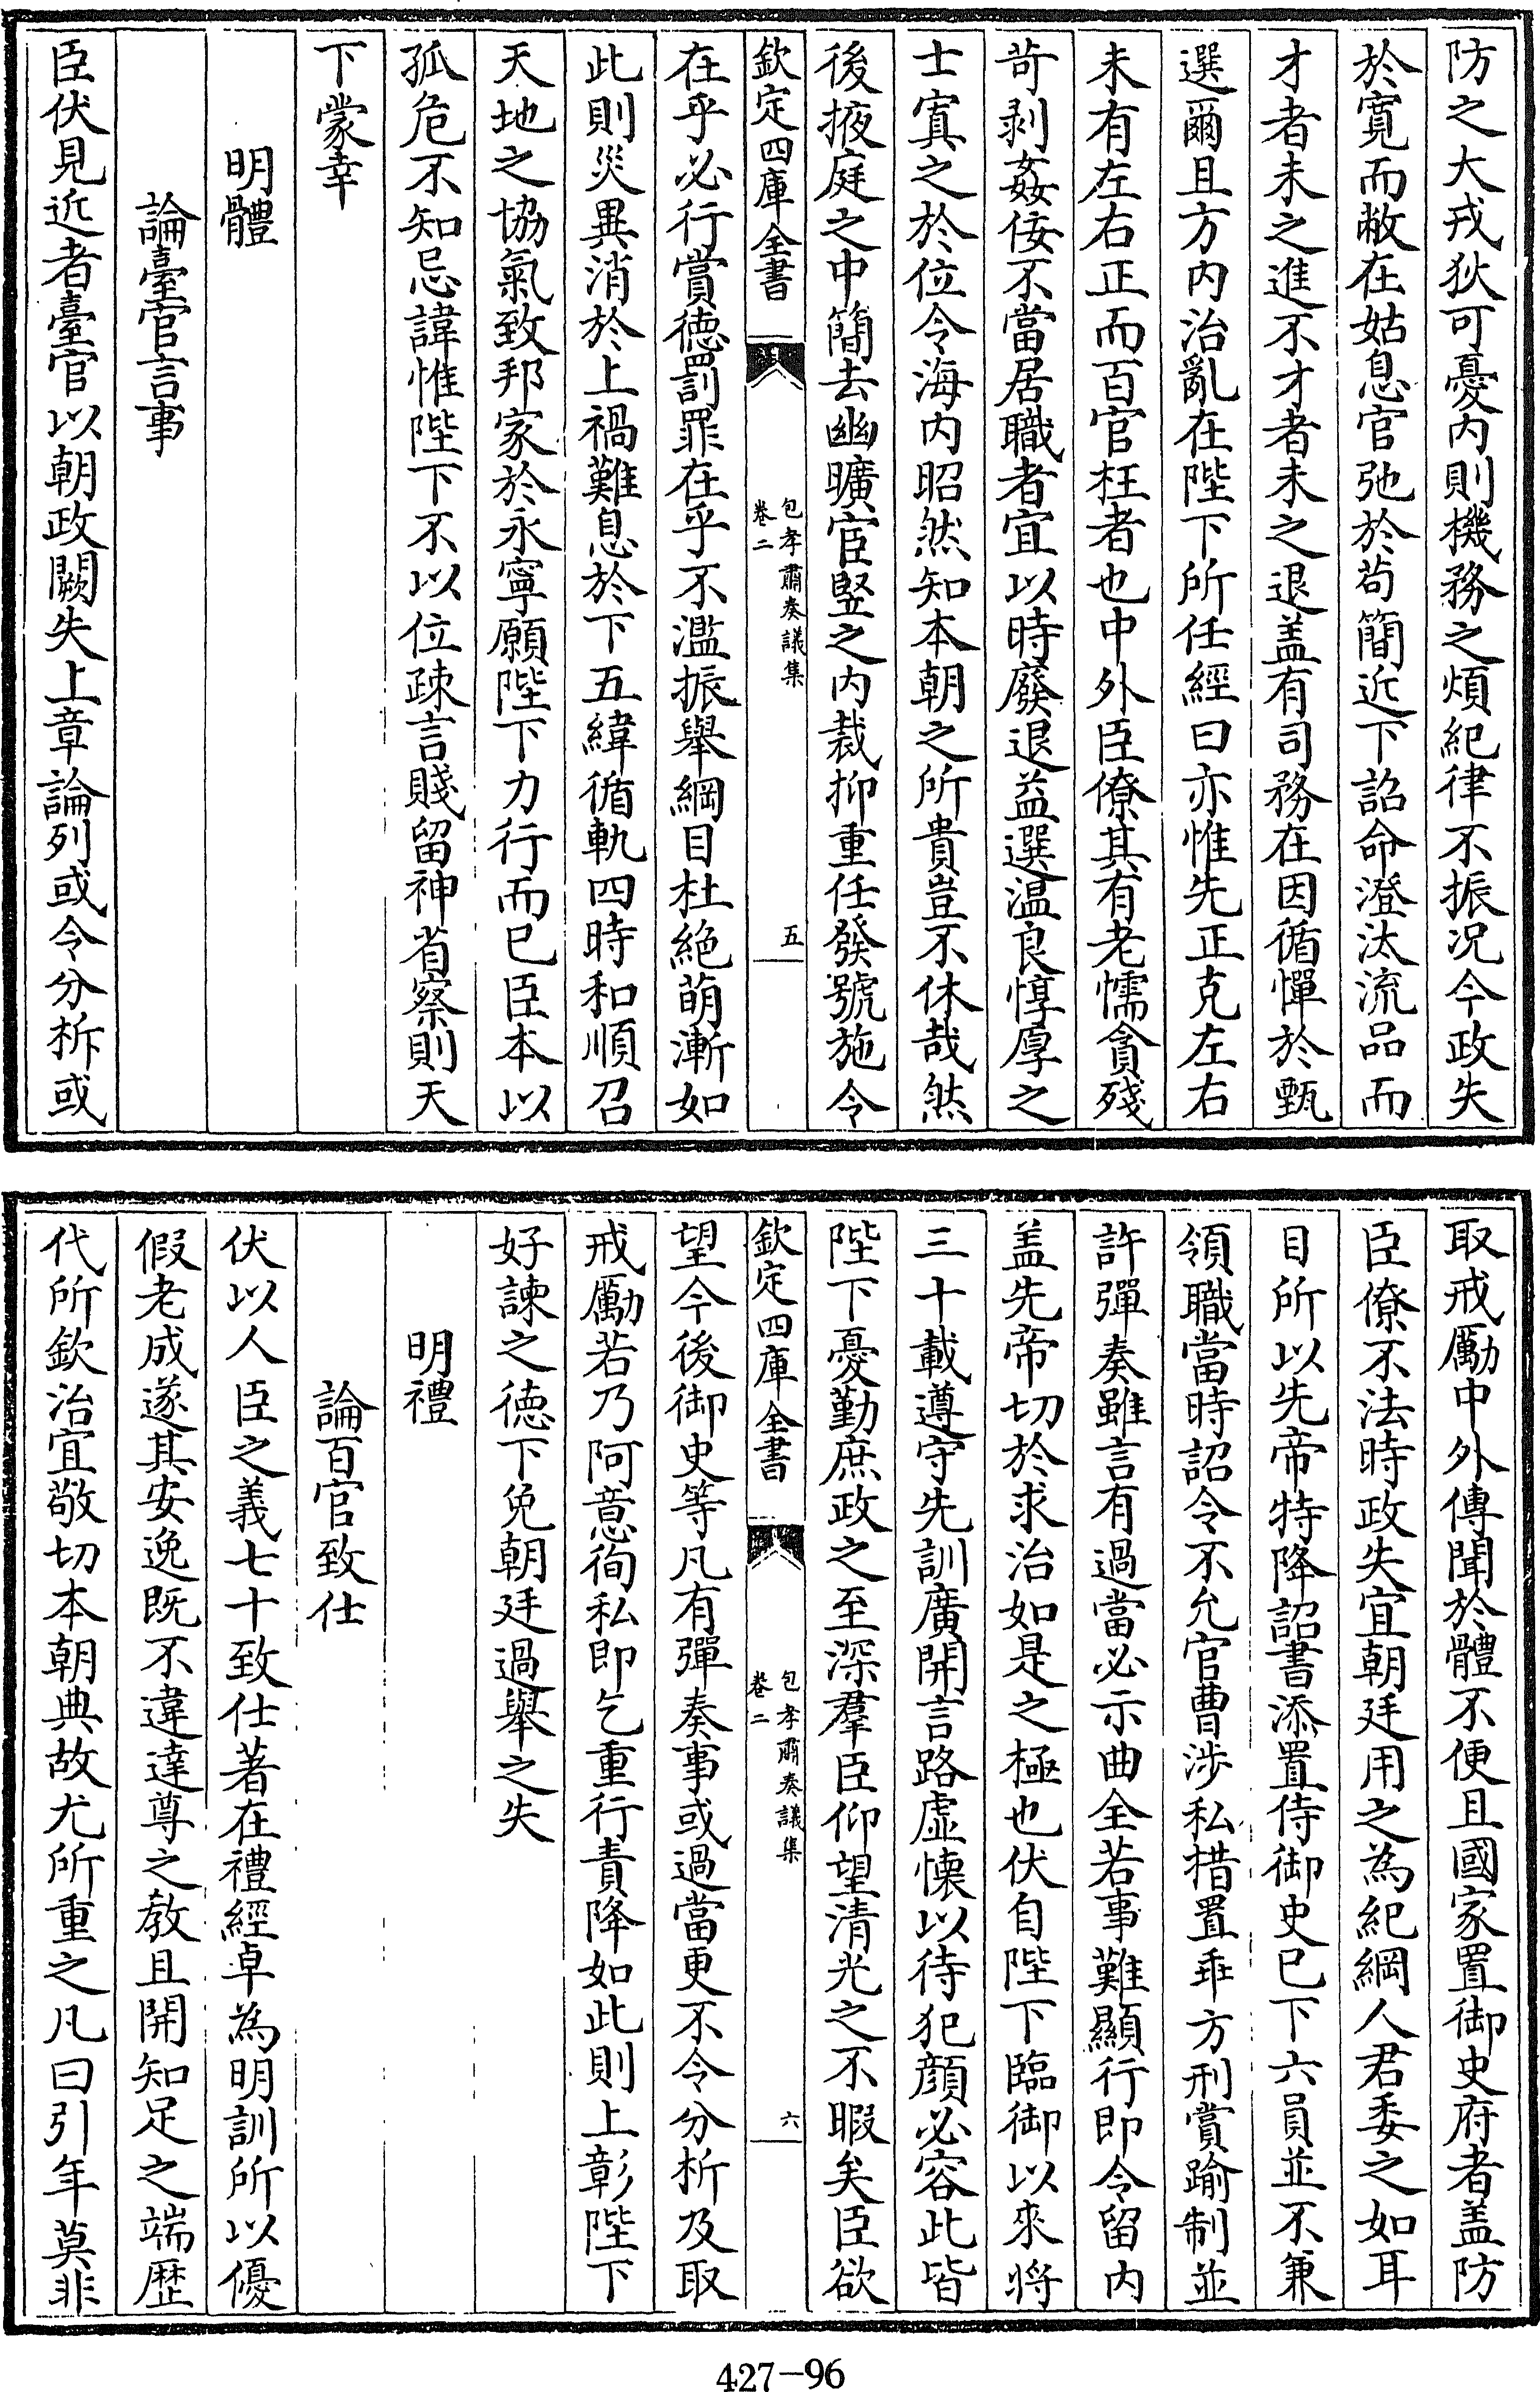 防之大戎狄可憂内則機務之煩紀律不振况今政失
於寛而敝在姑息官弛於茍簡近下詔命澄汰流品而
才者未之進不才者未之退盖有司務在因循憚於甄
選爾且方内治亂在陛下所任經曰亦惟先正克左右
未有左右正而百官枉者也中外臣僚其有老懦貪殘
苛剥姦佞不當居職者宜以時廢退益選温良惇厚之
士寘之於位令海内昭然知本朝之所貴豈不休哉然
後掖庭之中簡去幽曠宦豎之内裁抑重任發號施令
欽定四庫全書
包孝肅奏議集
卷二
五
在乎必行賞德罰罪在乎不濫振舉綱目杜絶萌漸如
此則災異消於上禍難息於下五緯循軌四時和順召
天地之協氣致邦家於永寧願陛下力行而已臣本以
孤危不知忌諱惟陛下不以位疎言賤留神省察則天
下蒙幸
明體
論臺官言事
臣伏見近者臺官以朝政闕失上章論列或令分析或
取戒勵中外傳聞於體不便且國家置御史府者盖防
臣僚不法時政失宜朝廷用之為紀綱人君委之如耳
目所以先帝特降詔書添置侍御史已下六員並不兼
領職當時詔令不允官曹涉私措置乖方刑賞踰制並
許彈奏雖言有過當必示曲全若事難顯行即令留内
盖先帝切於求治如是之極也伏自陛下臨御以來將
三十載遵守先訓廣開言路虛懐以待犯顔必容此皆
陛下憂勤庶政之至深羣臣仰望清光之不暇矣臣欲
欽定四庫全書
包孝肅奏議集
卷二
六
望今後御史等凡有彈奏事或過當更不令分析及取
戒勵若乃阿意徇私即乞重行責降如此則上彰陛下
好諫之德下免朝廷過舉之失
明禮
論百官致仕
伏以人臣之義七十致仕著在禮經卓為明訓所以優
假老成遂其安逸既不違達尊之教且開知足之端歴
代所欽治宜敬切本朝典故尤所重之凡曰引年莫非
427-96